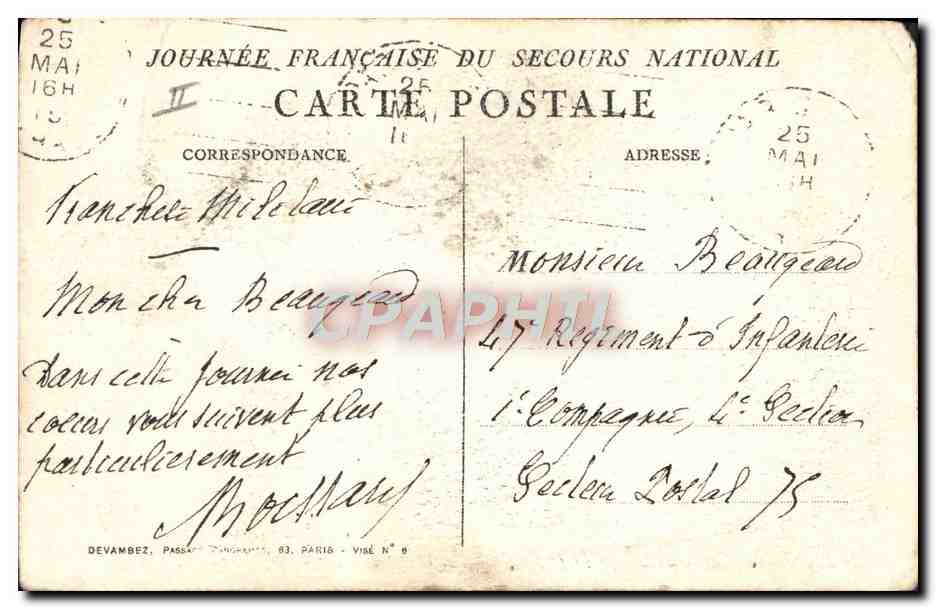 25
MAI
16H
25
MAI
25
MAI
H
II
JOURNÉE FRANÇAISE DU SECOURS NATIONAL
CARTE POSTALE
CORRESPONDANCE
ADRESSE
Franchise Militaire
Mon cher Beaugeard
Dans cette journée nos
coeurs vous suivent plus
particulièrement
Monsieur Beaugeard
47e Regiment d'Infanterie
1e Compagnie, 4e Section
Secteur Postal 75
CPAPHIL
DEVAMBEZ, 63, PARIS - VISÉ N° 6